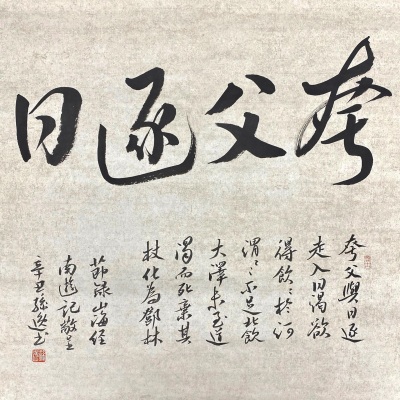 夸父逐日
夸父與日逐
走入日渴欲
得飲〻於河
渭〻不足北飲
大澤未至道
渴而死棄其
杖化為鄧林
節錄山海經
南遊記敬呈
辛丑孫書